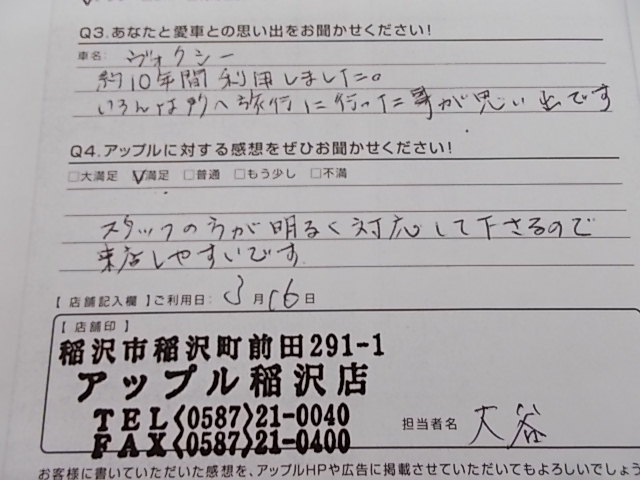 Q3.あなたと愛車との思い出をお聞かせください!
車名: ヴォクシー
約10年間利用しました。
いろんな所へ旅行に行った事が思い出です
Q4.アップルに対する感想をぜひお聞かせください!
□大満足 ☑満足 □普通 □もう少し □不満
スタッフの方が明るく対応して下さるので
来店しやすいです。
【店舗記入欄】ご利用日: 3月16日
【店舗印】
稲沢市稲沢町前田291-1
アップル稲沢店
TEL<0587>21-0040
FAX<0587>21-0400
担当者名 大谷
お客様に書いていただいた感想を、アップルHPや広告に掲載させていただいてもよろしいでしょう